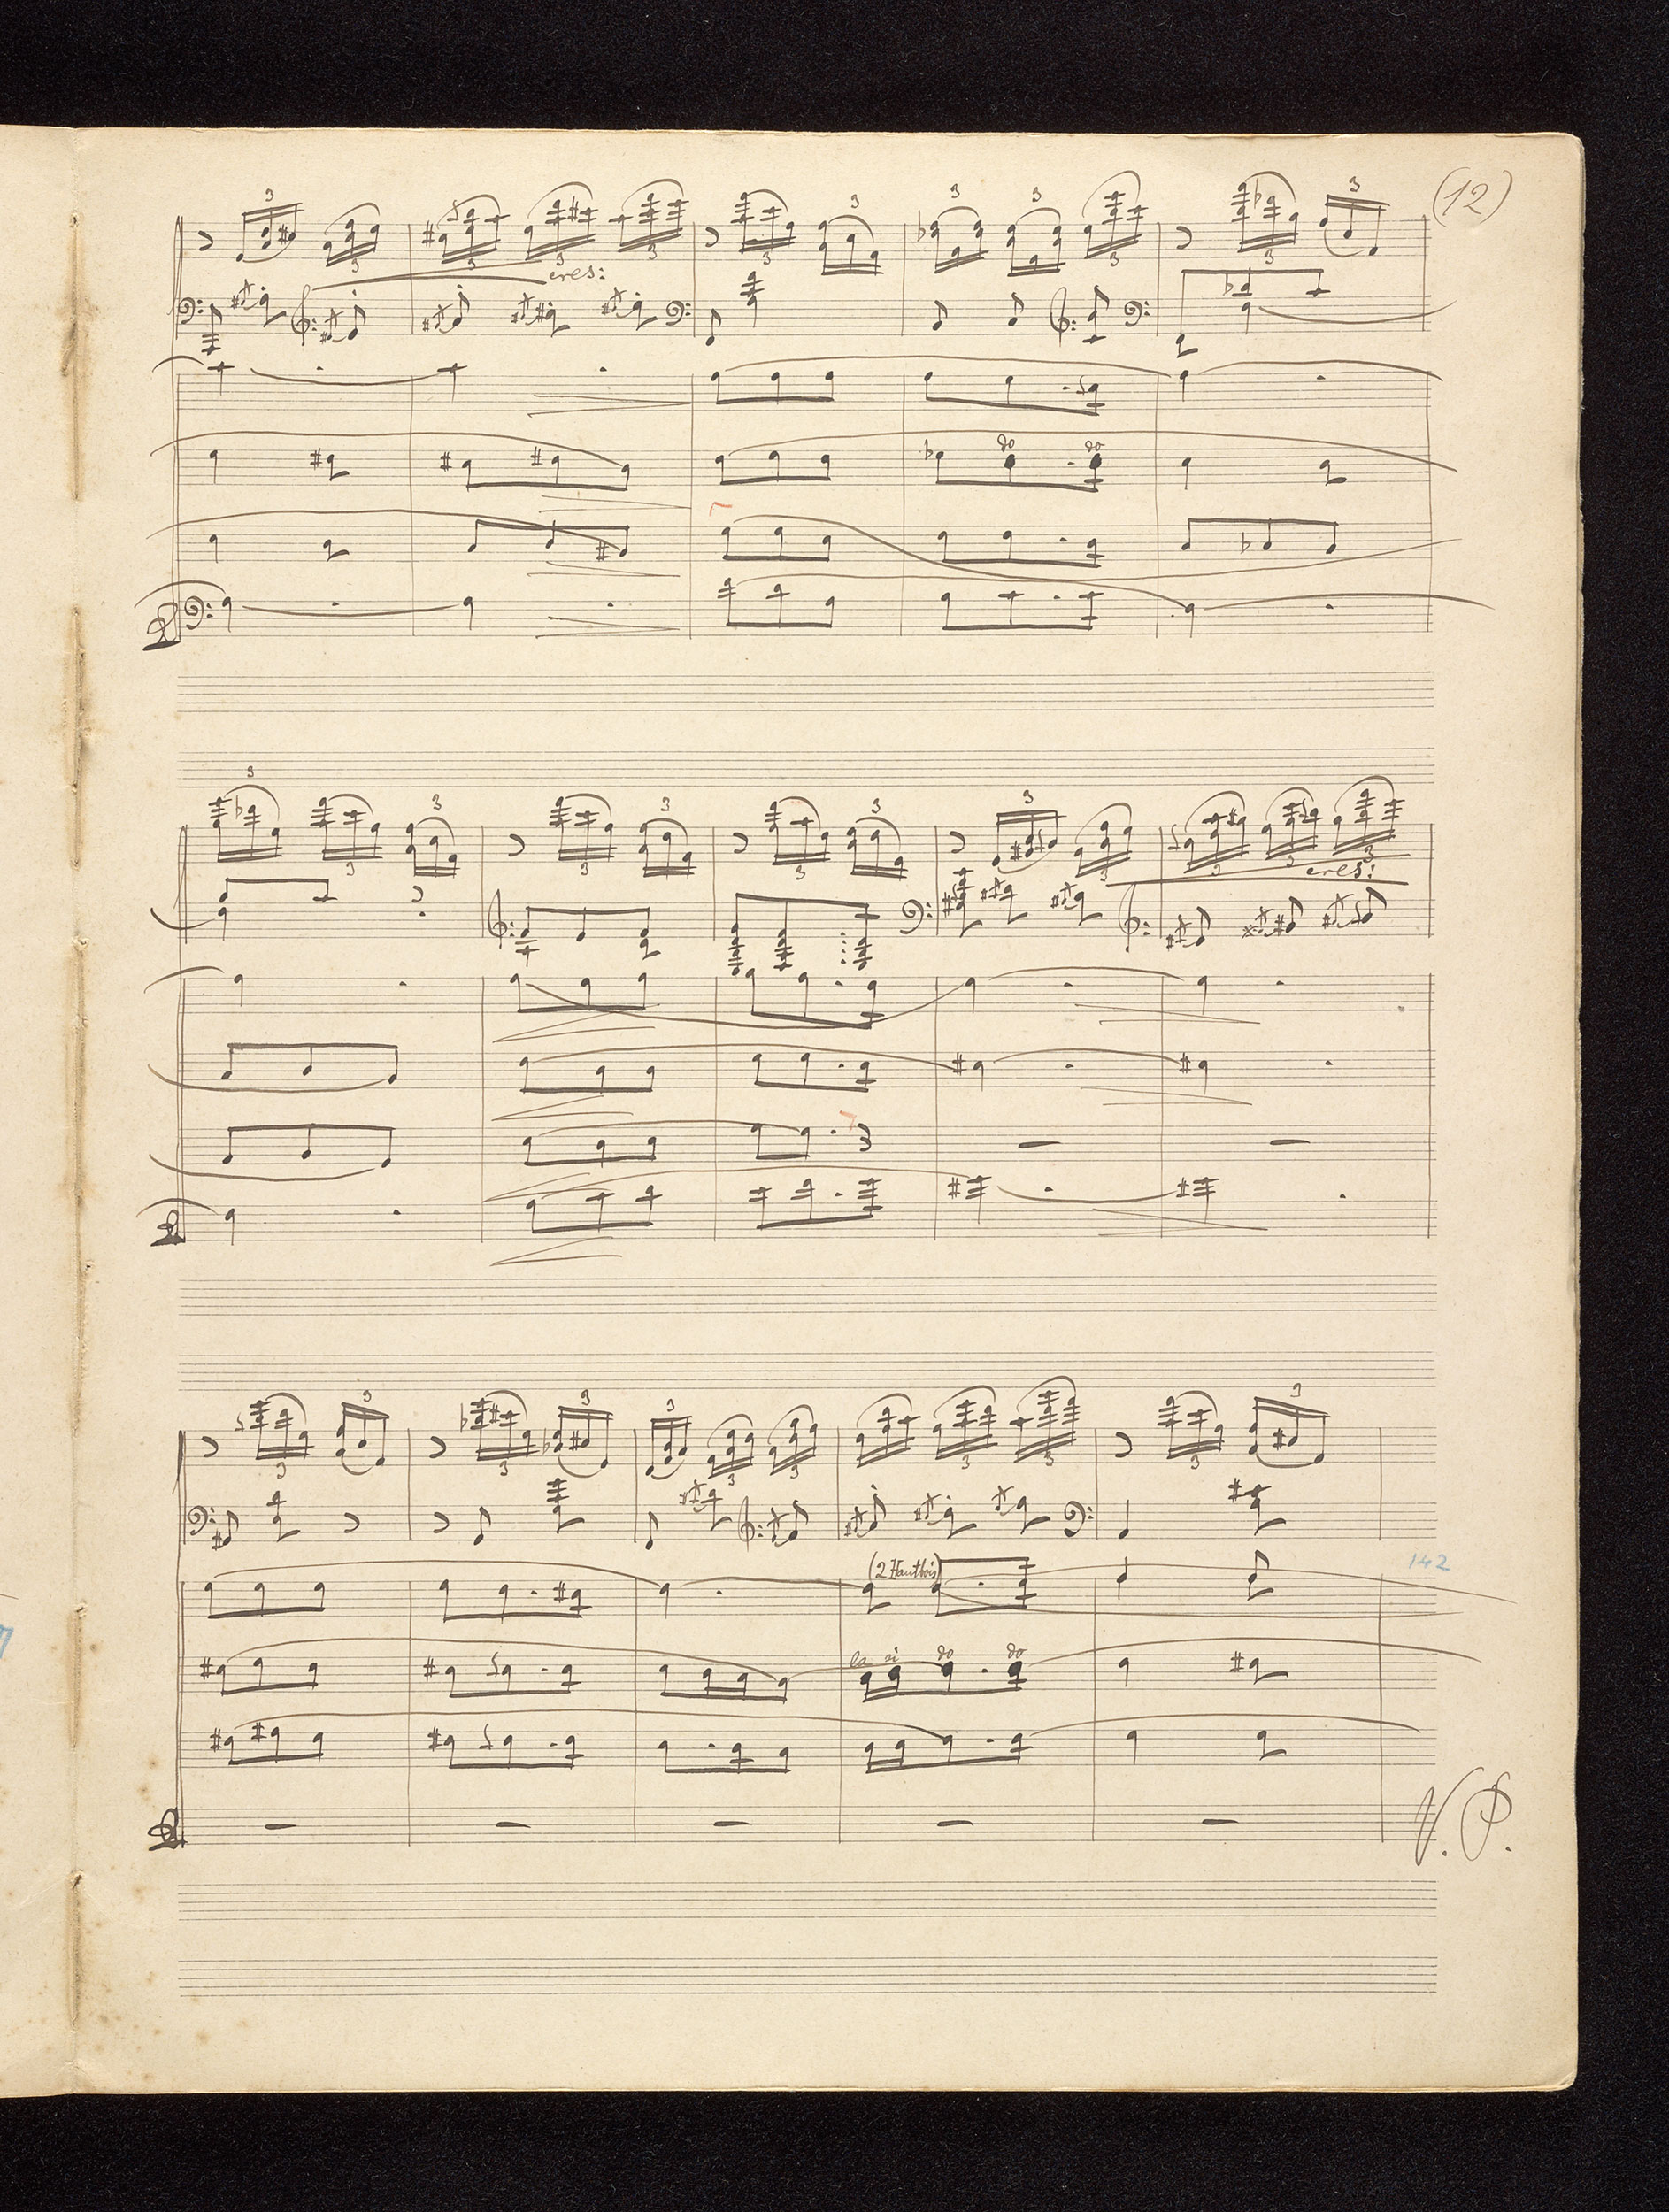 (12)
3 3 3 3
3 3 3 3 3 3
cres:
do do
3 3 3 3
3 3 3 3 3
cres:
3 3 3 3
3 3 3 3 3 3
(2 Hautbois)
142
la si do do
V. P.